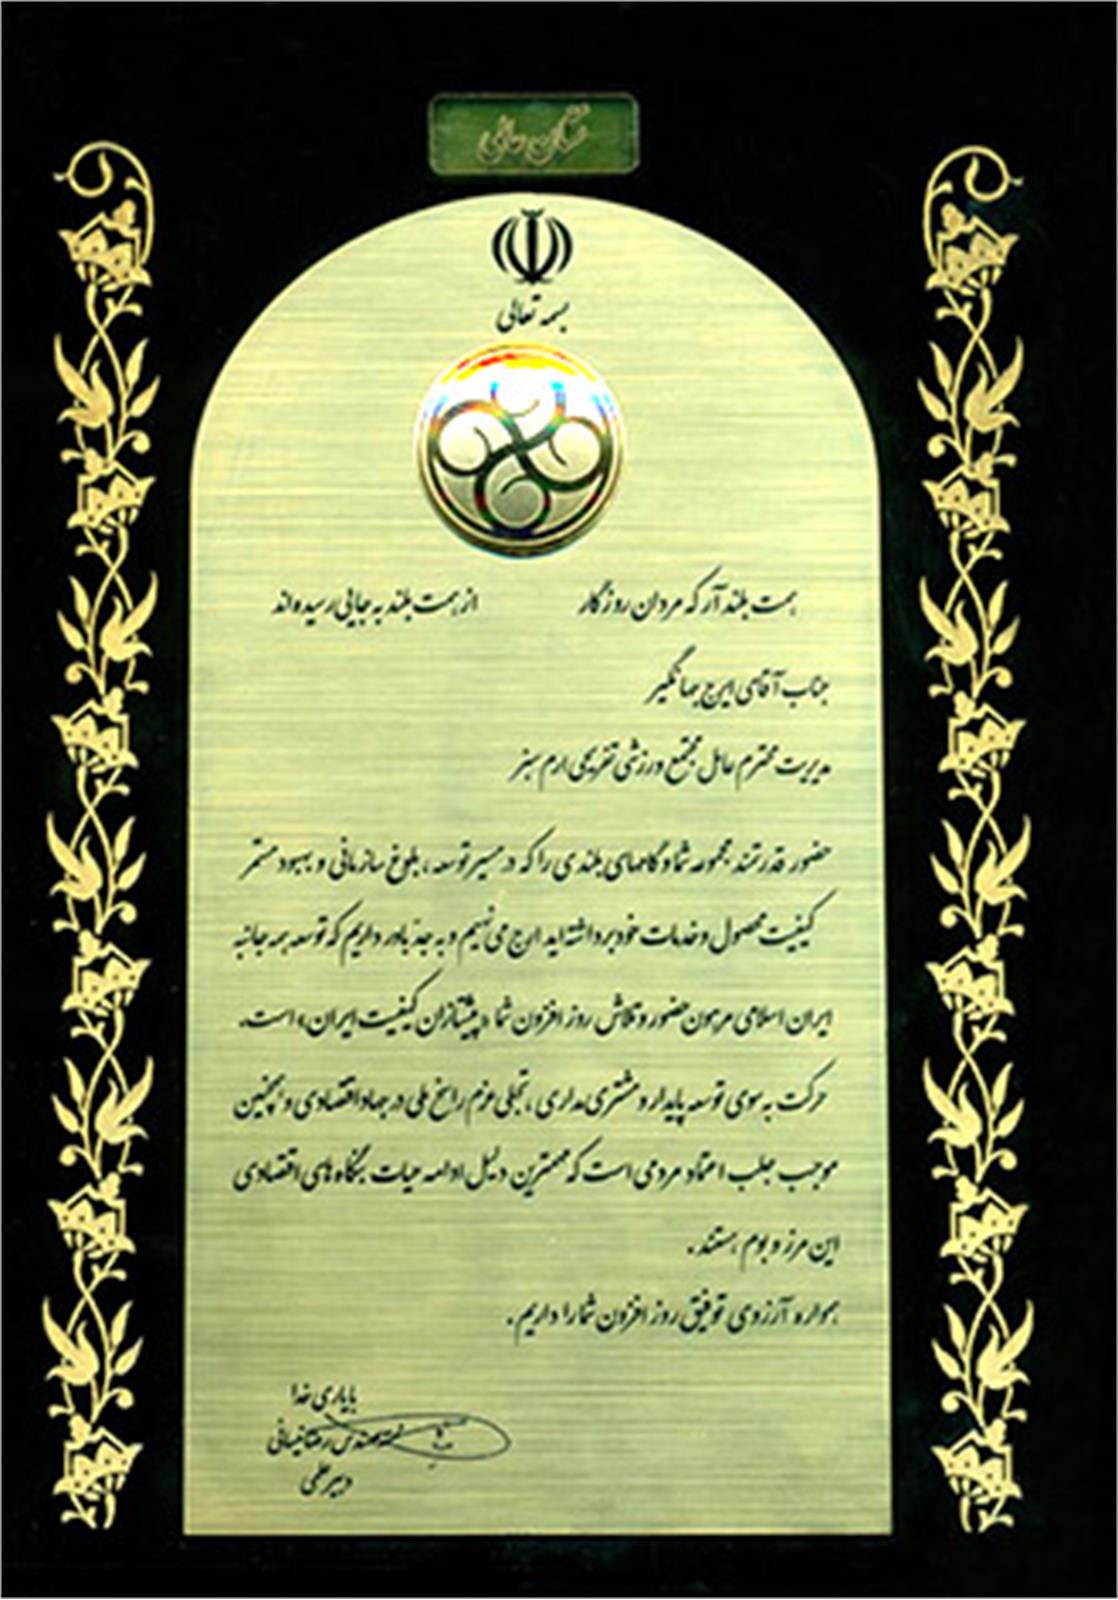 نشان عالی
بسمه تعالی
همت بلند آر که مردان روزگار از همت بلند به جایی رسیده اند
جناب آقای ایرج جهانگیر
مدیریت محترم عامل مجتمع ورزشی تفریحی ارم سبز
حضور قدرتمند مجموعه شما و گامهای بلندی را که در مسیر توسعه ، بلوغ سازمانی و بهبود مستمر
کیفیت محصول و خدمات خود برداشته اید ارج می نهیم و به جد باور داریم که توسعه همه جانبه
ایران اسلامی مرهون حضور و تلاش روز افزون شما «پیشتازان کیفیت ایران» است.
حرکت به سوی توسعه پایدار و مشتری مداری ، تجلی عزم راسخ ملی در جهاد اقتصادی و همچنین
موجب جلب اعتماد مردمی است که مهمترین دلیل ادامه حیات بنگاه های اقتصادی
این مرز و بوم هستند .
همواره آرزوی توفیق روز افزون شما را داریم .
با یاری خدا
مهندس رضا
دبیر علمی